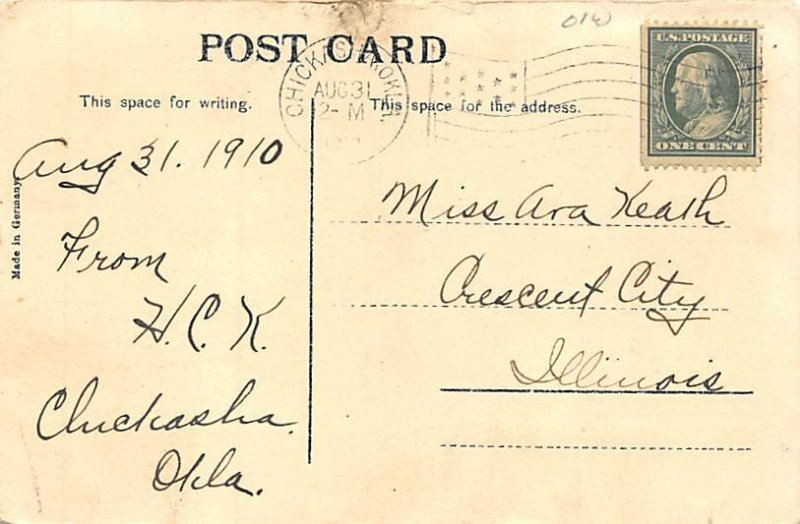 OIW
POST CARD
U.S. POSTAGE
ONE CENT
CHICKASHA, OKLA.
AUG 31
2- M
This space for writing.
This space for the address.
Made in Germany.
Aug 31. 1910
From
H.C.K.
Chickasha.
Okla.
Miss Ara Keath
Crescent City
Illinois